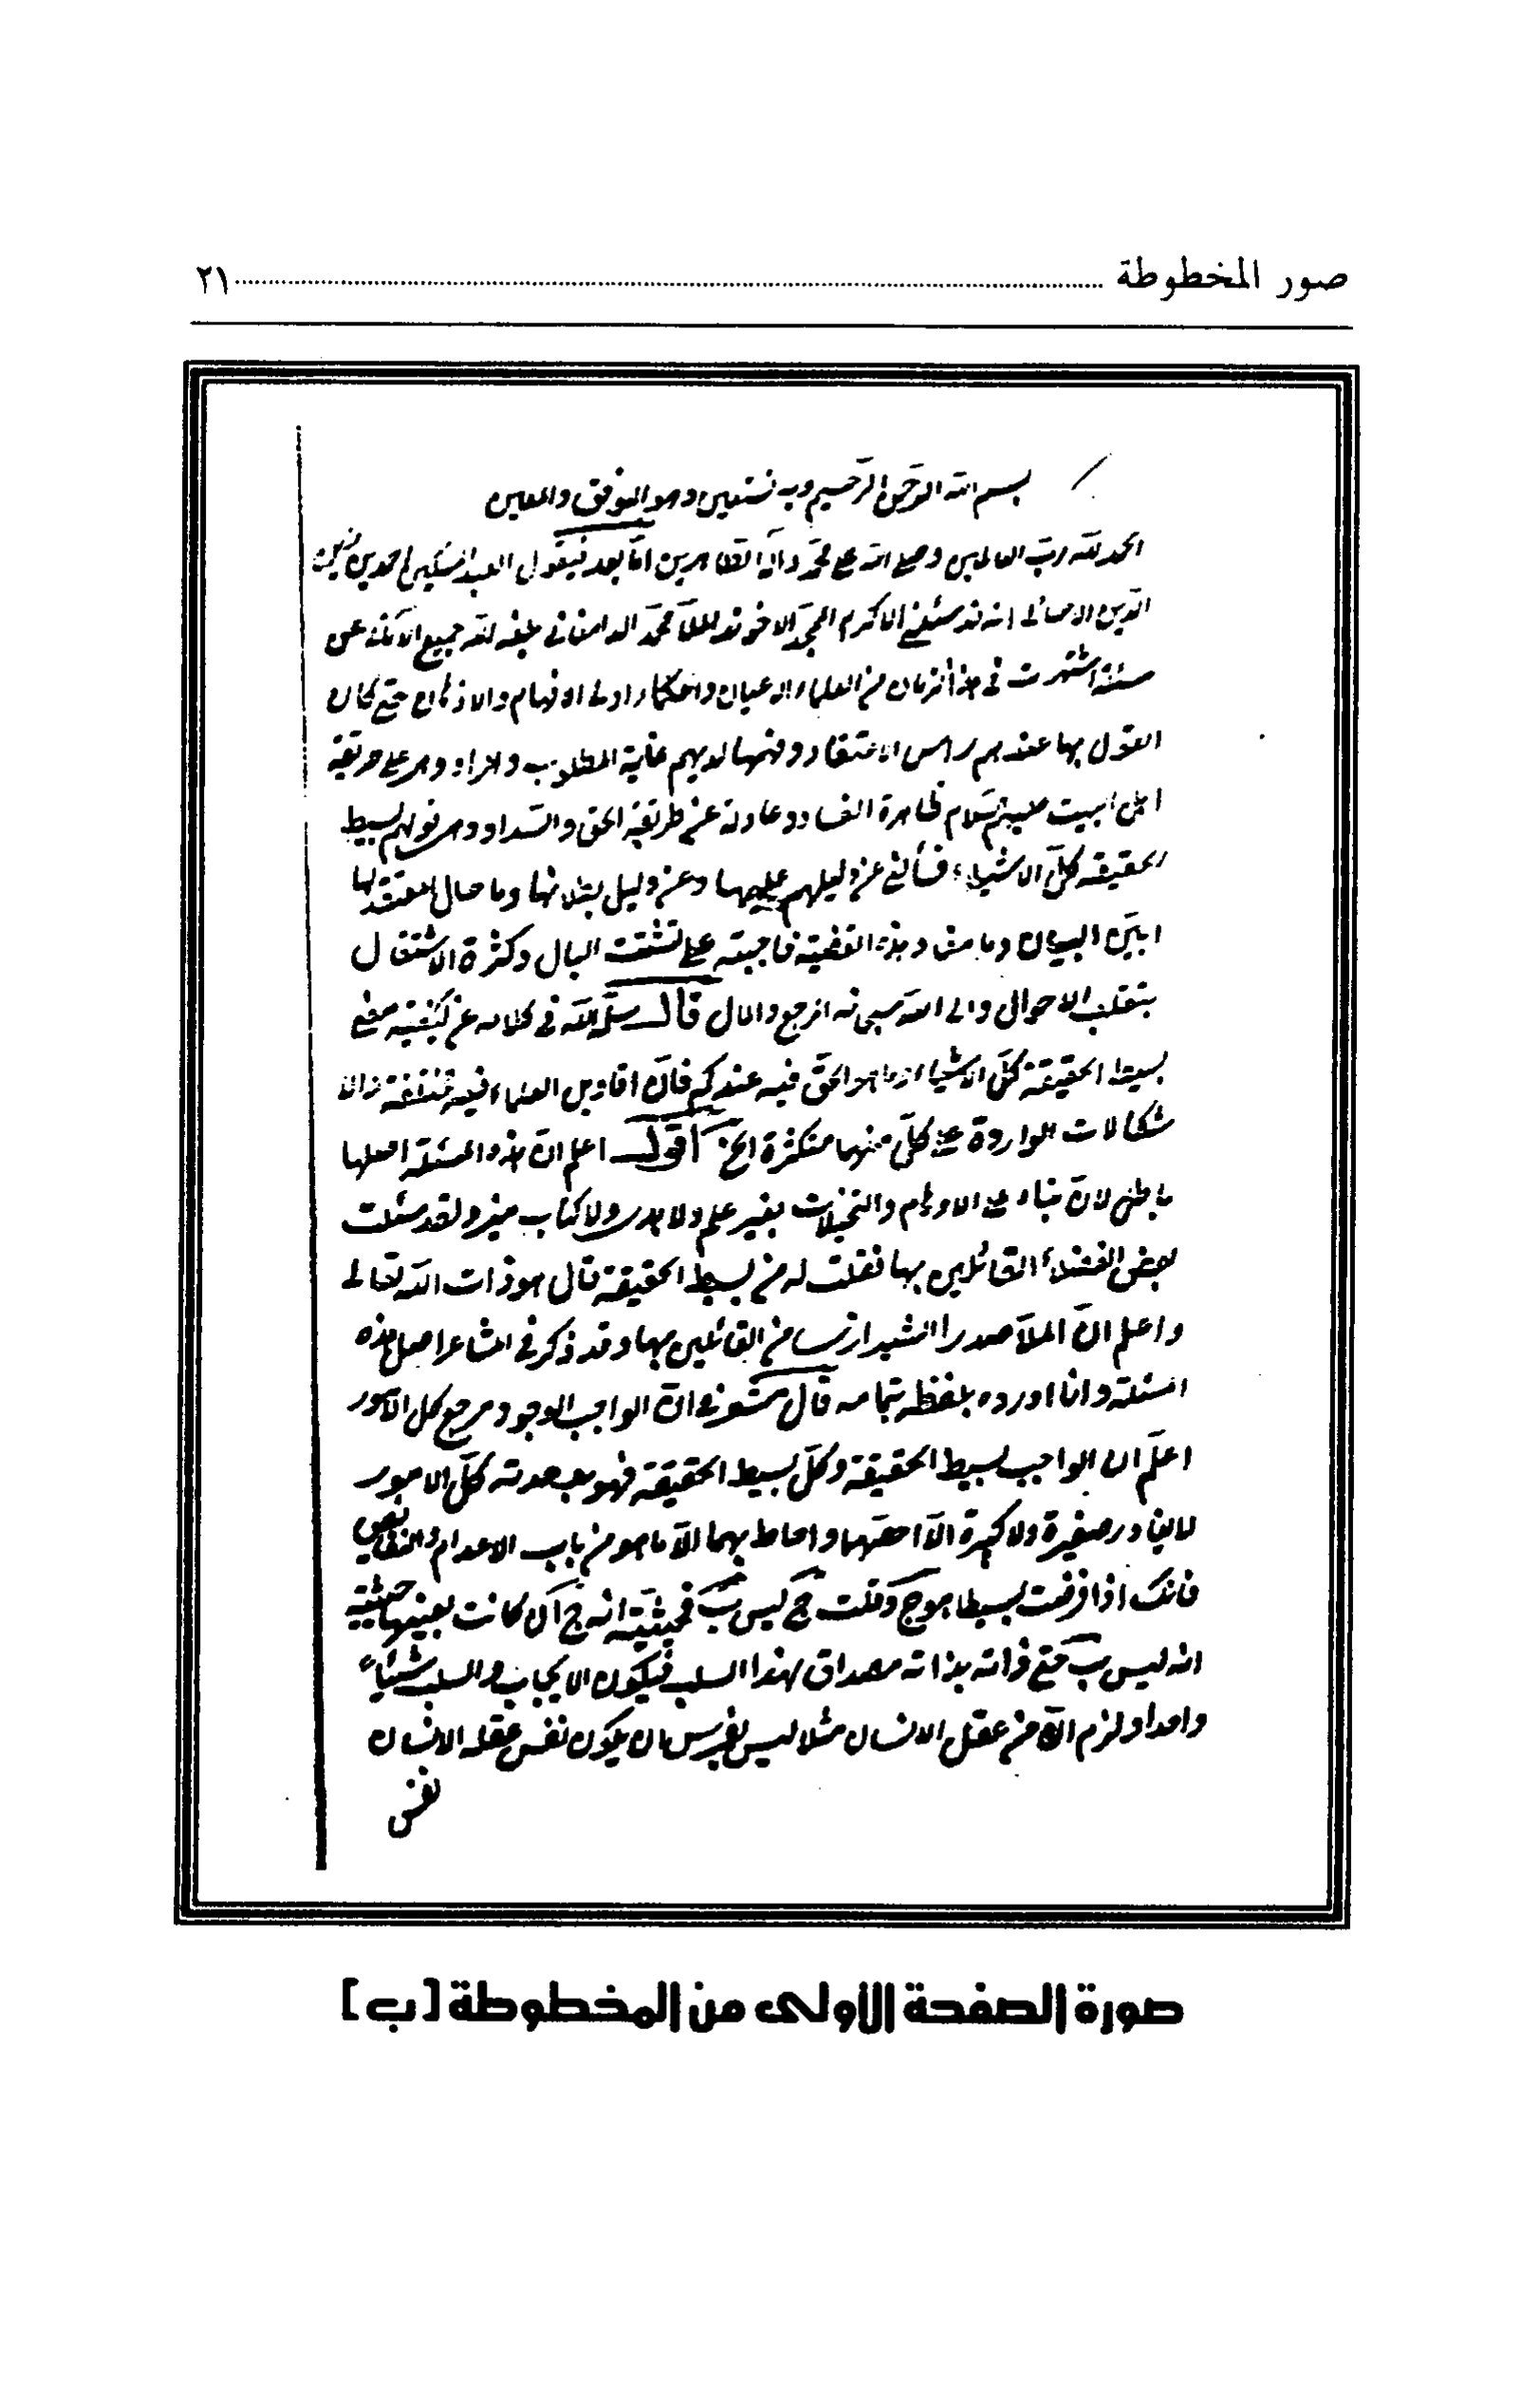 صور المخطوطة ........ ٢١
بسم الله الرحمن الرحيم وبه نستعين وهو الموفق والمعين
الحمد لله رب العالمين وصلى الله على محمد وآله الطاهرين اما بعد فيقول العبد المسكين احمد بن زين
الدين الاحسائي انه قد سئلني الاكرم الممجد الاخوند الملا محمد الدامغاني بلغه الله جميع الاماني عن
مسئلة اشتهرت في هذا الزمان من العلماء الاعيان والحكماء اولي الافهام والاذهان حتى كان
القول بها عندهم راس الاعتقاد وفهمها لديهم غاية المطلوب والمراد وهي على طريقة
اهل البيت عليهم السلام ظاهرة الفساد وعادلة عن طريقة الحق والسداد وهي قولهم بسيط
الحقيقة كل الاشياء فسألني عن دليلهم عليها وعن دليل بطلانها وما حال المعتقد لها
ابين البيان وما منشاء هذه القضية فاجبته على تشتت البال وكثرة الاشتغال
بتقلب الاحوال والى الله سبحانه المرجع والمال قال سلمه الله في كلامه عن كيفية معنى
بسيط الحقيقة كل الاشياء وما هو الحق فيه عندكم فان اقاويل العلماء فيه مختلفة والا
شكالات الواردة على كل منهما متكثرة الخ اقول اعلم ان هذه المسئلة اصلها
باطل لان بناء على الاوهام والتخيلات بغير علم ولا هدى ولا كتاب منير ولقد سئلت
بعض الفضلاء القائلين بها فقلت له من بسيط الحقيقة قال هو ذات الله تعالى
واعلم ان الملا صدرا الشيرازي من القائلين بها وقد ذكر في المشاعر اصل هذه
المسئلة وانا اورده بلفظه بتمامه قال مشعر في ان الواجب الوجود مرجع كل الامور
اعلم ان الواجب بسيط الحقيقة وكل بسيط الحقيقة فهو بوحدته كل الامور
لا يغادر صغيرة ولا كبيرة الا احصها واحاط بها الا ما هو من باب الاعدام والنقايص
فانك اذا فرضت بسيطا هو ج وقلت ج ليس ب فحيثية انه ج ان كانت بعينها حيثية
انه ليس ب حتى ذاته بذاته مصداق لهذا السلب فيكون الايجاب والسلب شيئاً
واحدا ولزم ان من عقل الانسان مثلا ليس بفرس ان يكون نفس عقله الانسان
نفس
صورة الصفحة الأولى من المخطوطة [ب]